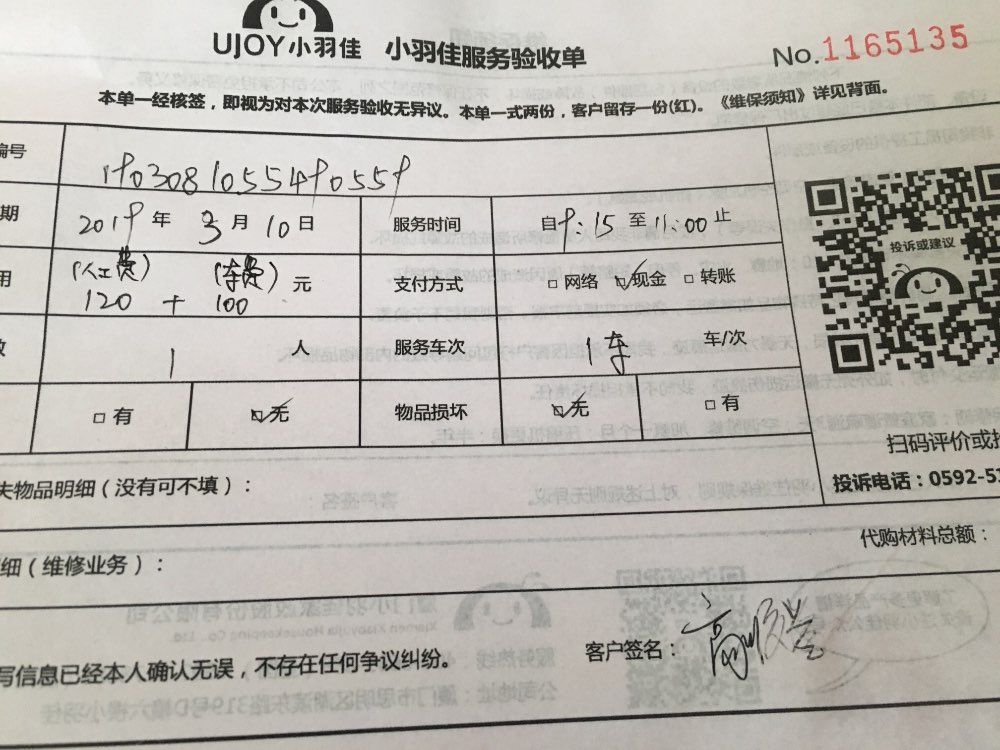 UJOY小羽佳 小羽佳服务验收单 No.1165135
本单一经核签，即视为对本次服务验收无异议。本单一式两份，客户留存一份(红)。《维保须知》详见背面。
编号 1903081055490559
期 2019年 3月 10日 服务时间 自9:15至11:00止
用 (人工费) 120 + (车费) 100 元 支付方式 □网络 ☑现金 □转账
数 1 人 服务车次 1车 车/次
□有 ☑无 物品损坏 ☑无 □有
投诉或建议
扫码评价或
投诉电话：0592-5
失物品明细（没有可不填）：
代购材料总额：
细（维修业务）：
写信息已经本人确认无误，不存在任何争议纠纷。 客户签名：